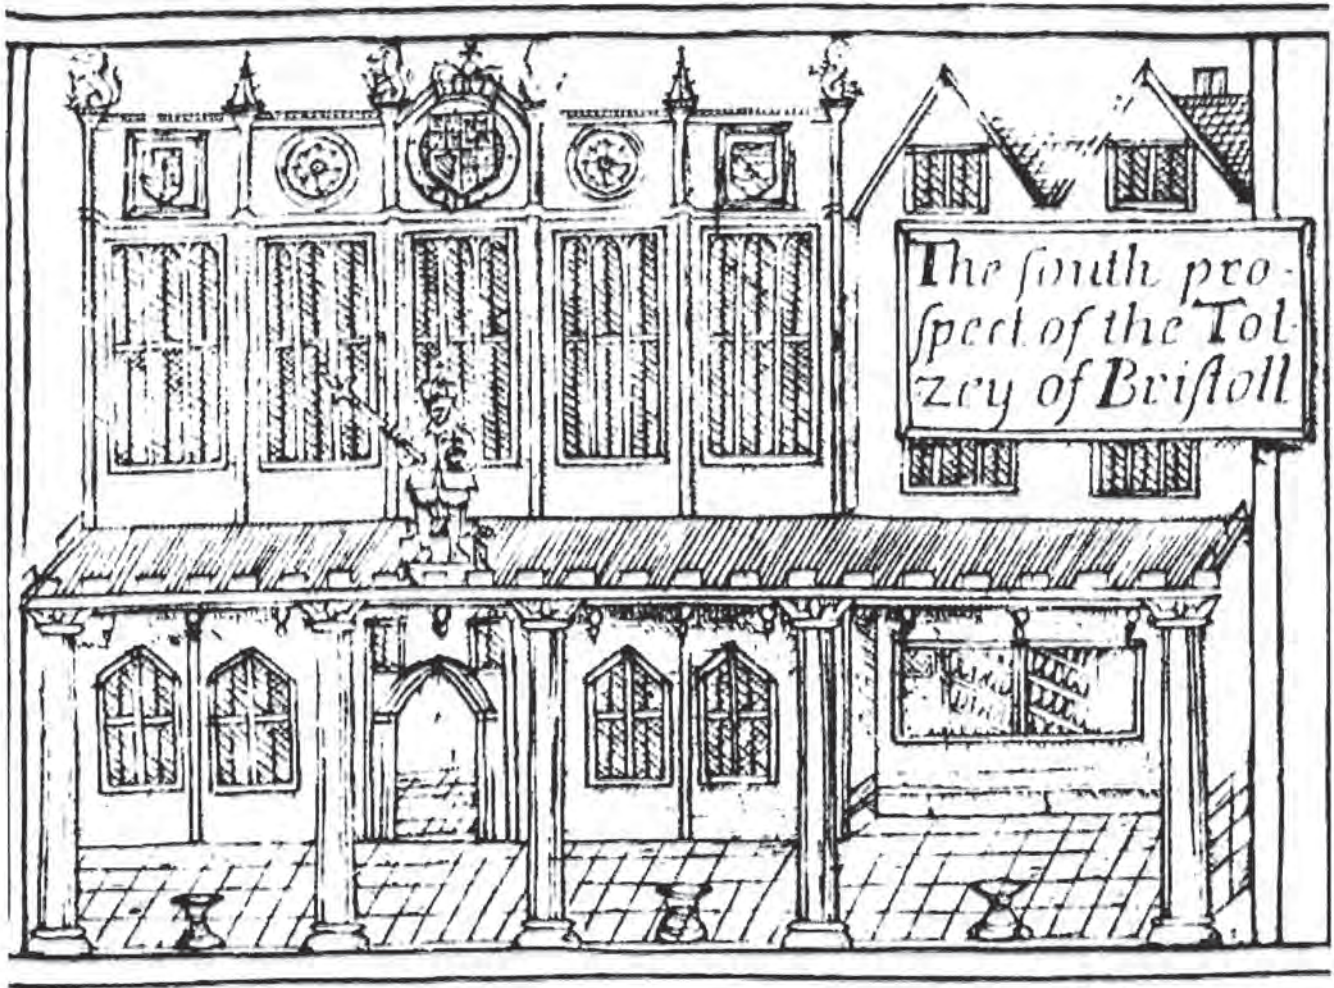 The ſouth pro-
ſpect of the Tol-
zey of Briſtoll